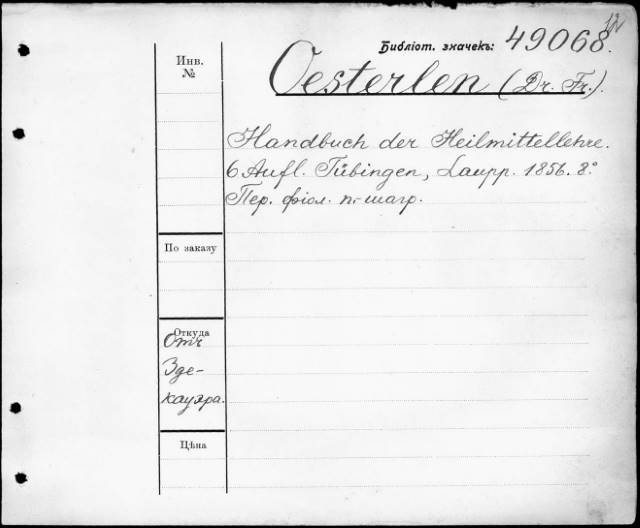 Библіот. значекъ: 49068.
Инв.
№
Oesterlen (Dr. Fr.).
Handbuch der Heilmittellehre.
6 Aufl. Tübingen, Laupp. 1856. 8°
Пер. фіол. п-шагр.
По заказу
Откуда
Отъ
Зде-
кауэра.
Цѣна